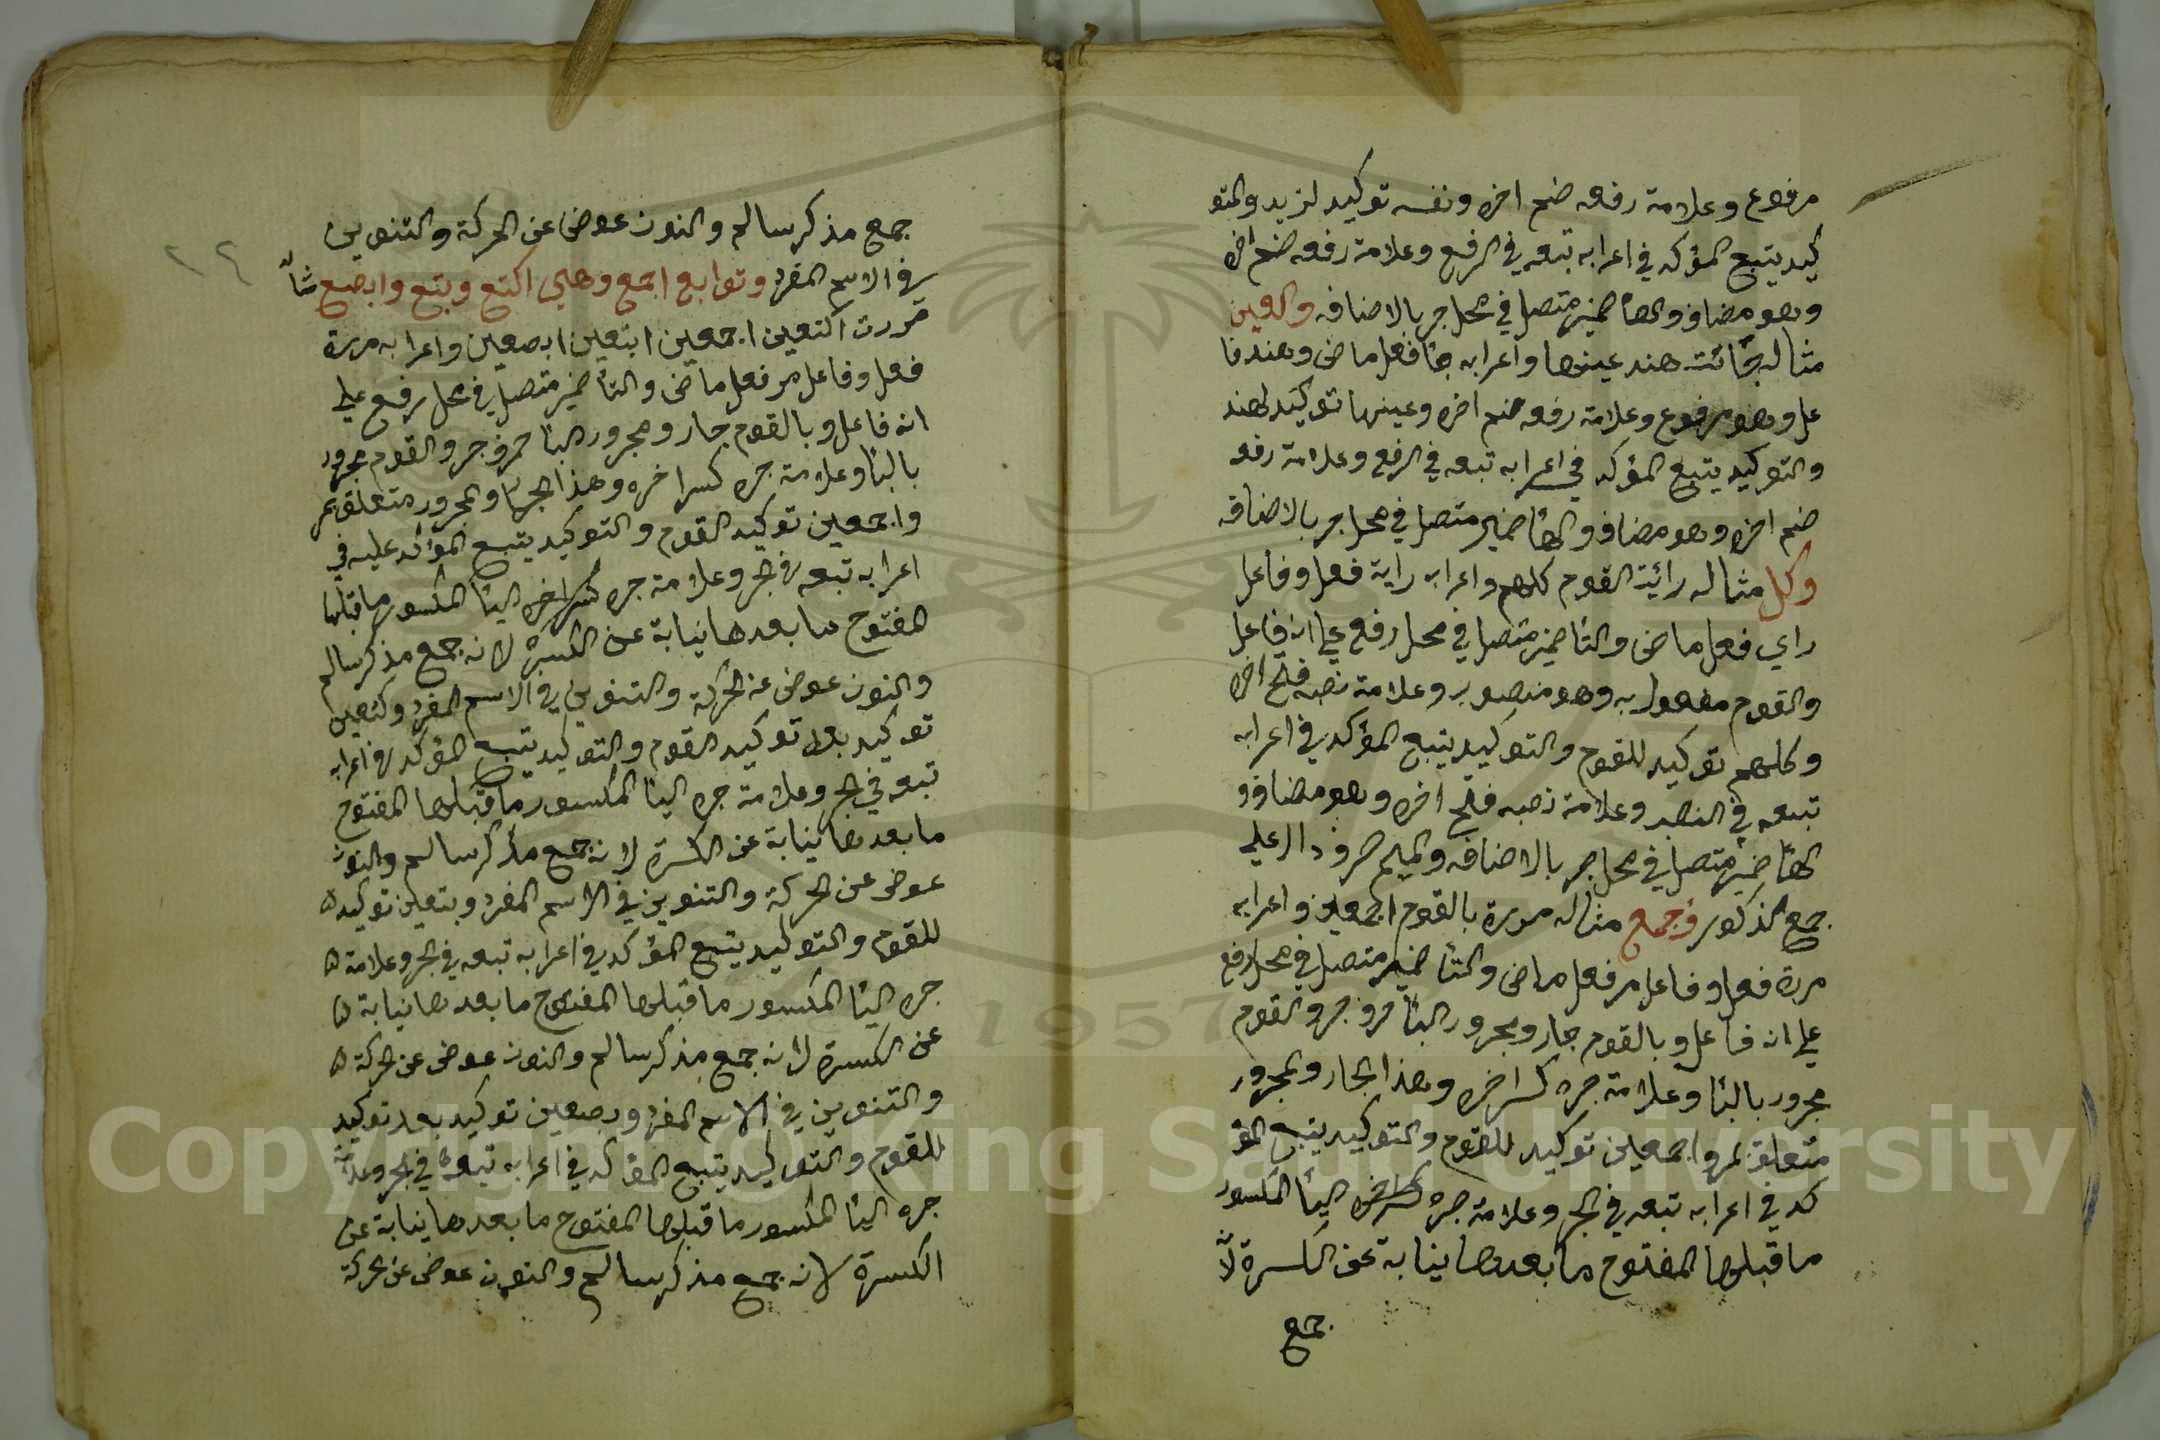 مرفوع وعلامة رفعه ضم اخره ونفسه توكيد لزيد والتو
كيد يتبع المؤكد في اعرابه تبعه في الرفع وعلامة رفعه ضم اخره
وهو مضاف والهاء ضمير متصل في محل جر بالاضافه والعين
مثاله جائت هند عينها واعرابه جا فعل ماضى وهند فا
عل وهو مرفوع وعلامة رفعه ضم اخره وعينها توكيد لهند
والتوكيد يتبع المؤكد في اعرابه تبعه في الرفع وعلامة رفعه
ضم اخره وهو مضاف والهاء ضمير متصل في محل جر بالاضافه
وكل مثاله رائية القوم كلهم واعرابه راية فعل وفاعل
راي فعل ماضى والتاء ضمير متصل في محل رفع على انه فاعل
والقوم مفعول به وهو منصوب وعلامة نصبه فتح اخره
وكلهم توكيد للقوم والتوكيد يتبع المؤكد في اعرابه
تبعه في النصب وعلامة نصبه فتح اخره وهو مضاف و
الهاء ضمير متصل في محل جر بالاضافه والميم حرف دال على
جمع الذكور وجمع مثاله مررة بالقوم اجمعين واعرابه
مررة فعل وفاعل مر فعل ماضى والتاء ضمير متصل في محل رفع
على انه فاعل وبالقوم جار ومجرور الباء حرف جر والقوم
مجرور بالباء وعلامة جره كسر اخره وهذا الجار والمجرور
متعلق بمر واجمعين توكيد للقوم والتوكيد يتبع المؤ
كد في اعرابه تبعه في الجر وعلامة جره الياء المكسور
ما قبلها المفتوح ما بعدها نيابة عن الكسرة لا
جمع
جمع مذكر سالم والنون عوض عن الحركة والتنوين
في الاسم المفرد وتوابع اجمع وهي اكتع وبتع وابصع
مررت اكتعين اجمعين ابتعين ابصعين واعرابه مررة
فعل وفاعل مر فعل ماضى والتاء ضمير متصل في محل رفع على
انه فاعل وبالقوم جار ومجرور الباء حرف جر والقوم مجرور
بالباء وعلامة جره كسر اخره وهذا الجار والمجرور متعلق بمر
واجمعين توكيد القوم والتوكيد يتبع المؤكد عليه في
اعرابه تبعه في الجر وعلامة جره كسر اخره الياء المكسور ما قبلها
المفتوح ما بعدها نيابة عن الكسرة لانه جمع مذكر سالم
والنون عوض عن الحركة والتنوين في الاسم المفرد وكتعين
توكيد بعد توكيد القوم والتوكيد يتبع المؤكد في اعرابه
تبعه في الجر وعلامة جره الياء المكسور ما قبلها المفتوح
ما بعدها نيابة عن الكسرة لانه جمع مذكر سالم والنون
عوض عن الحركة والتنوين في الاسم المفرد وبتعين توكيد
للقوم والتوكيد يتبع المؤكد في اعرابه تبعه في الجر وعلامة
جره الياء المكسور ما قبلها المفتوح ما بعدها نيابة
عن الكسرة لانه جمع مذكر سالم والنون عوض عن الحركة
والتنوين في الاسم المفرد وبصعين توكيد بعد توكيد
للقوم والتوكيد يتبع المؤكد في اعرابه تبعه في الجر وعلامة
جره الياء المكسور ما قبلها المفتوح ما بعدها نيابة عن
الكسرة لانه جمع مذكر سالم والنون عوض عن الحركة
1957
Copyright © King Saud University